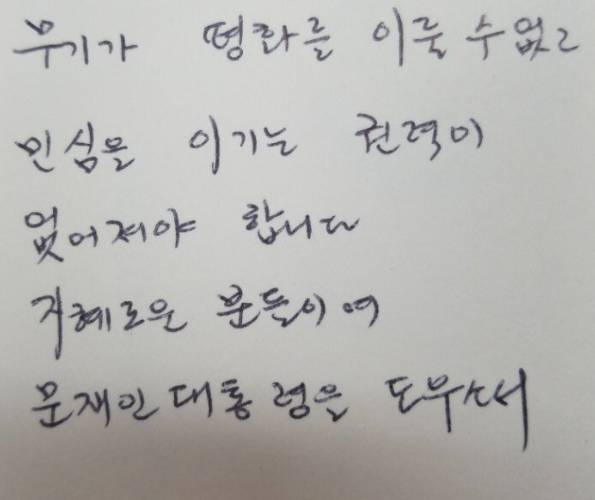 무기가 평화를 이룰 수 없고
민심을 이기는 권력이
없어져야 합니다
지혜로운 분들이여
문재인대통령을 도우소서